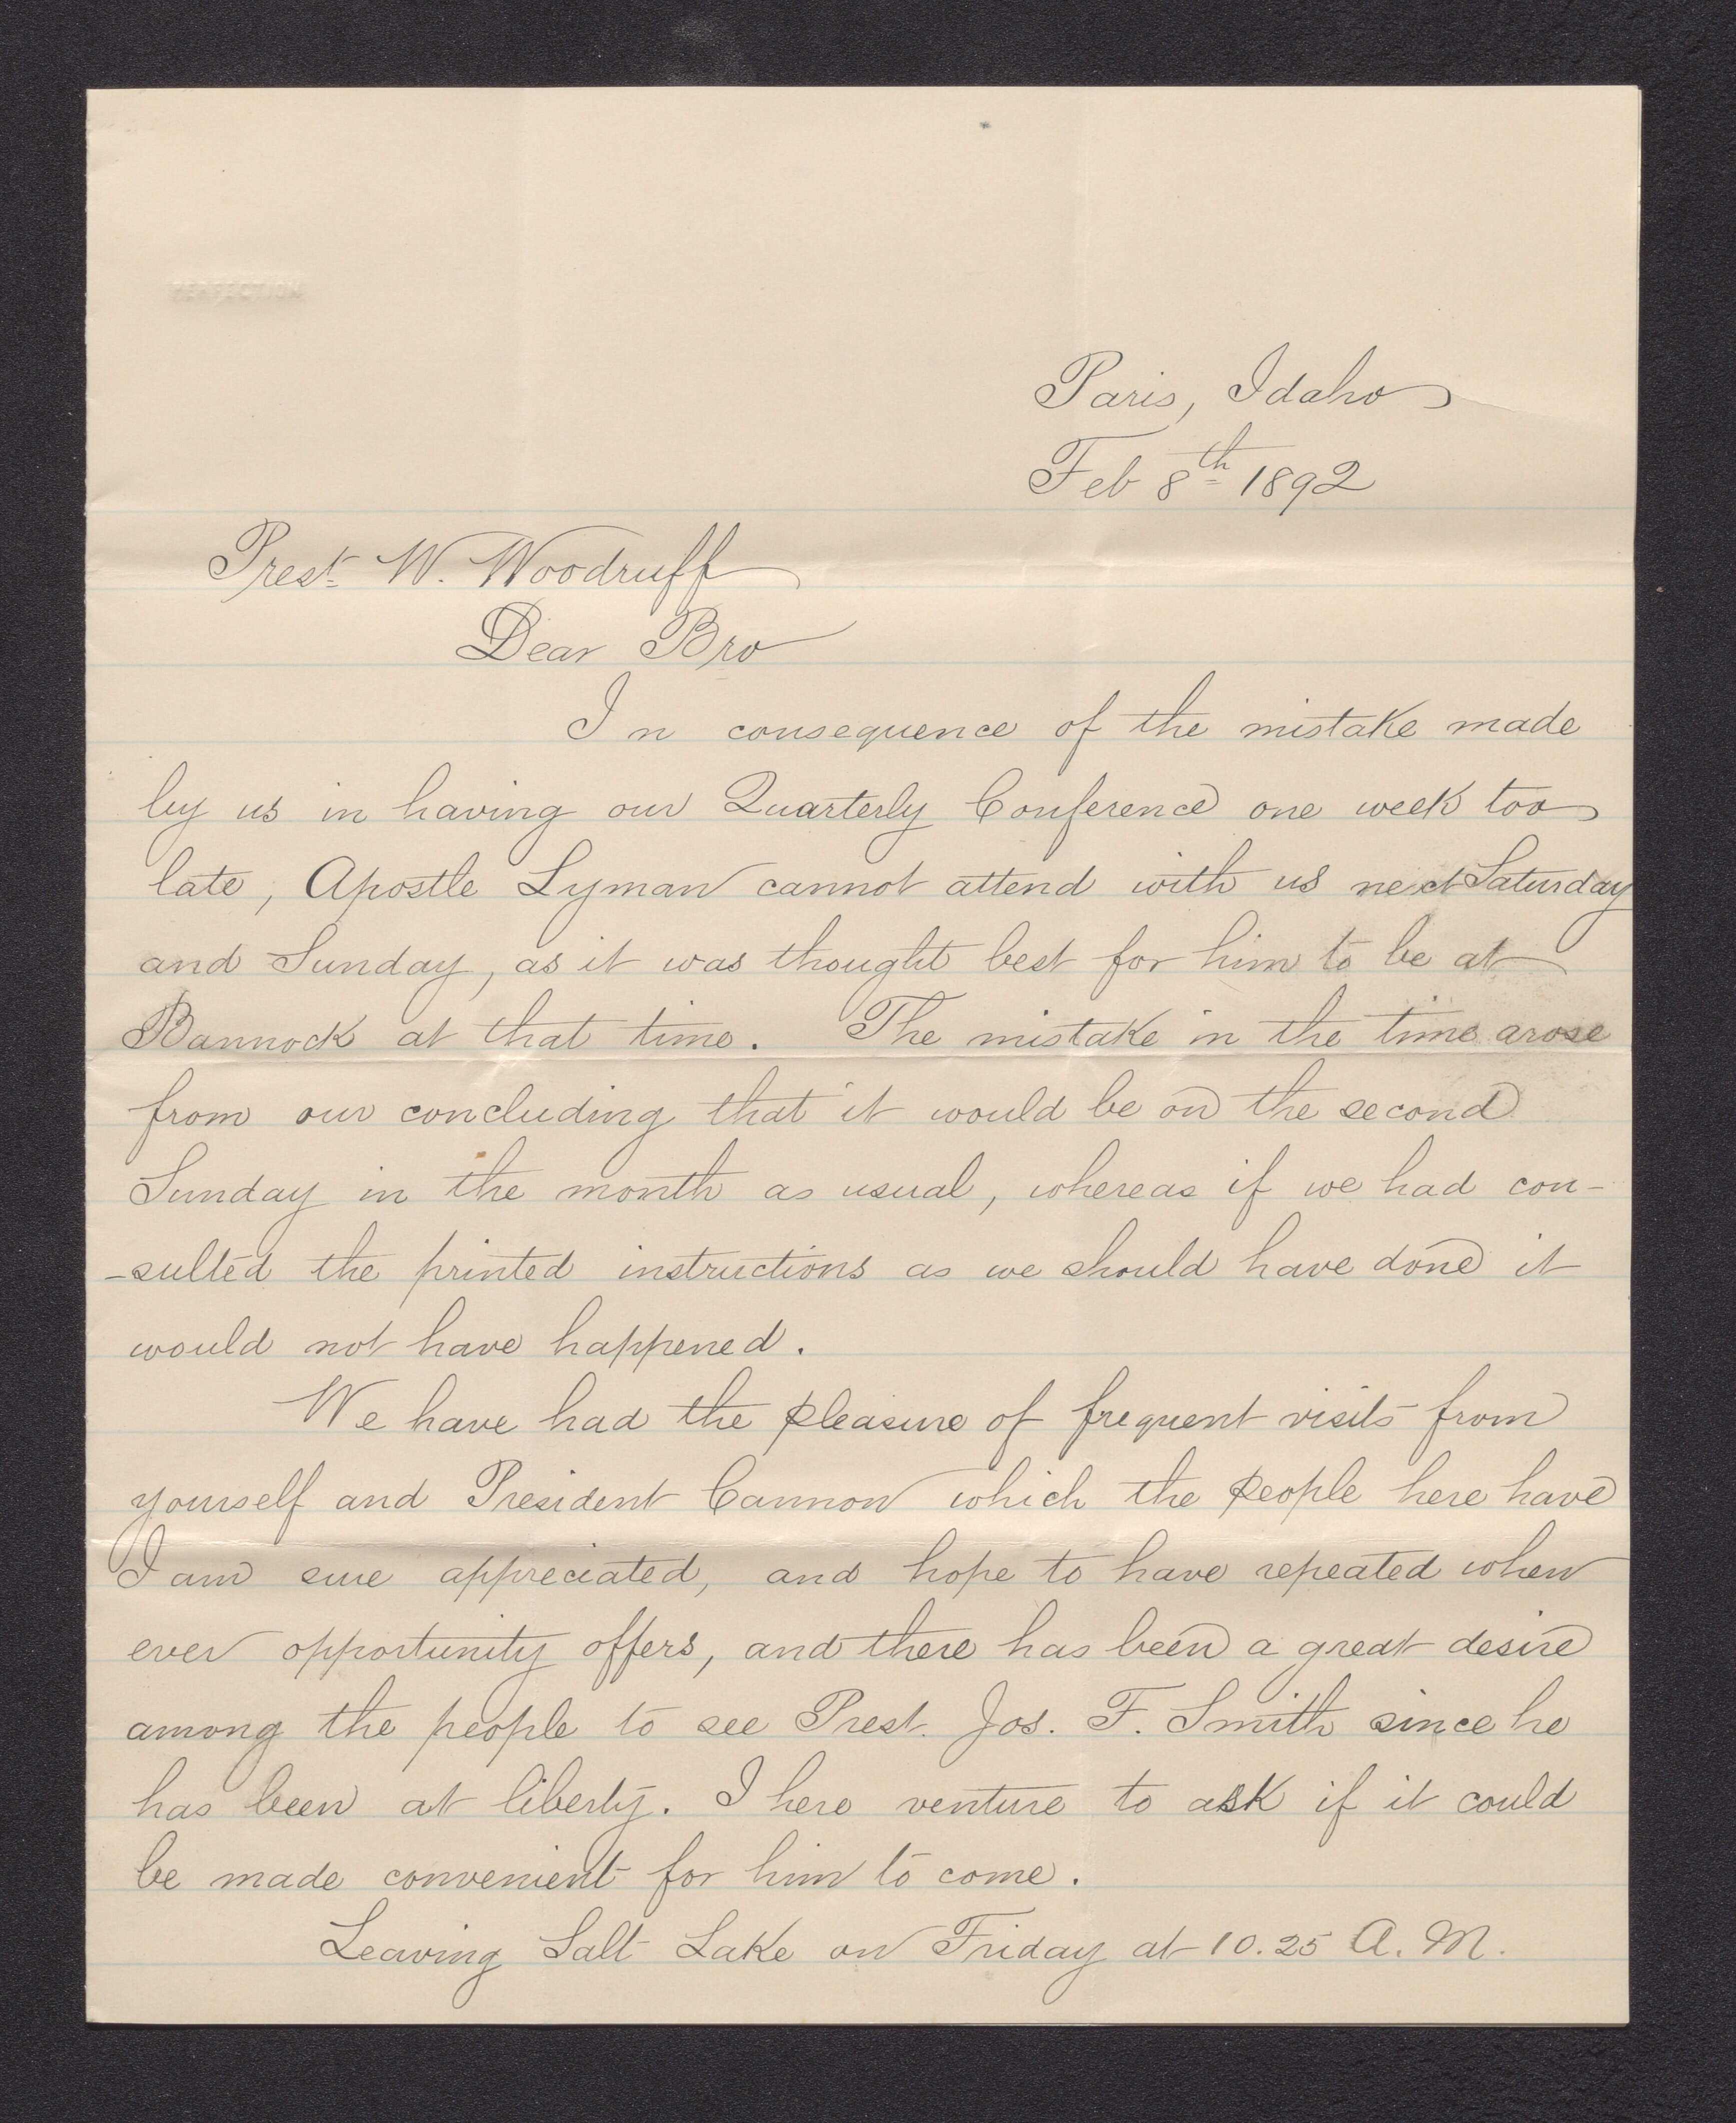 PERFECTION
Paris, Idaho
Feb 8th 1892
Prest W. Woodruff
Dear Bro
In consequence of the mistake made
by us in having our Quarterly Conference one week too
late, Apostle Lyman cannot attend with us next Saturday
and Sunday, as it was thought best for him to be at
Bannock at that time. The mistake in the time arose
from our concluding that it would be on the second
Sunday in the month as usual, whereas if we had con-
-sulted the printed instructions as we should have done it
would not have happened.
We have had the pleasure of frequent visits from
yourself and President Cannon which the people here have
I am sure appreciated, and hope to have repeated when
ever opportunity offers, and there has been a great desire
among the people to see Prest. Jos. F. Smith since he
has been at liberty. I here venture to ask if it could
be made convenient for him to come.
Leaving Salt Lake on Friday at 10.25 A.M.